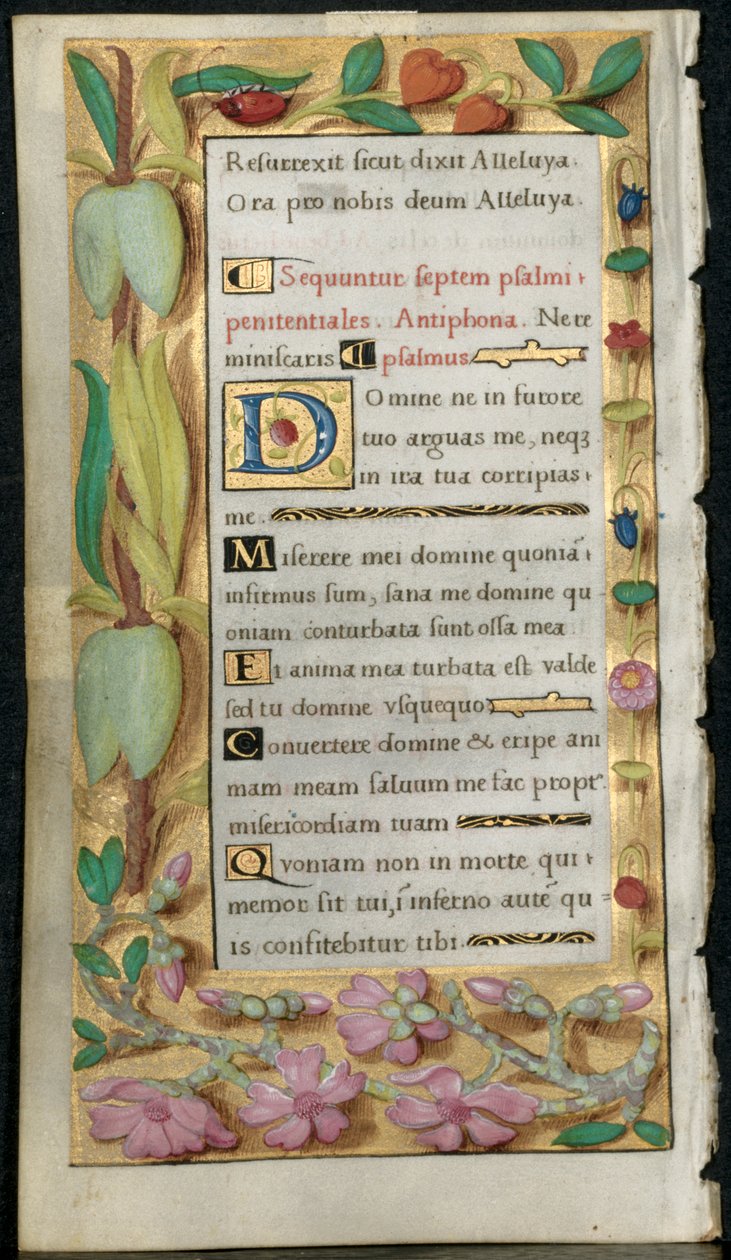 Resurrexit sicut dixit Alleluya.
Ora pro nobis deum Alleluya.
Sequuntur septem psalmi
penitentiales. Antiphona. Ne re
miniscaris psalmus
Domine ne in furore
tuo arguas me, neqꝫ
in ira tua corripias
me.
Miserere mei domine quoniā
infirmus sum, sana me domine qu
oniam conturbata sunt ossa mea
Et anima mea turbata est valde
sed tu domine vsquequo
Conuertere domine & eripe ani
mam meam saluum me fac propt
misericordiam tuam
Qvoniam non in morte qui
memor sit tui, ī inferno autē qu
is confitebitur tibi.